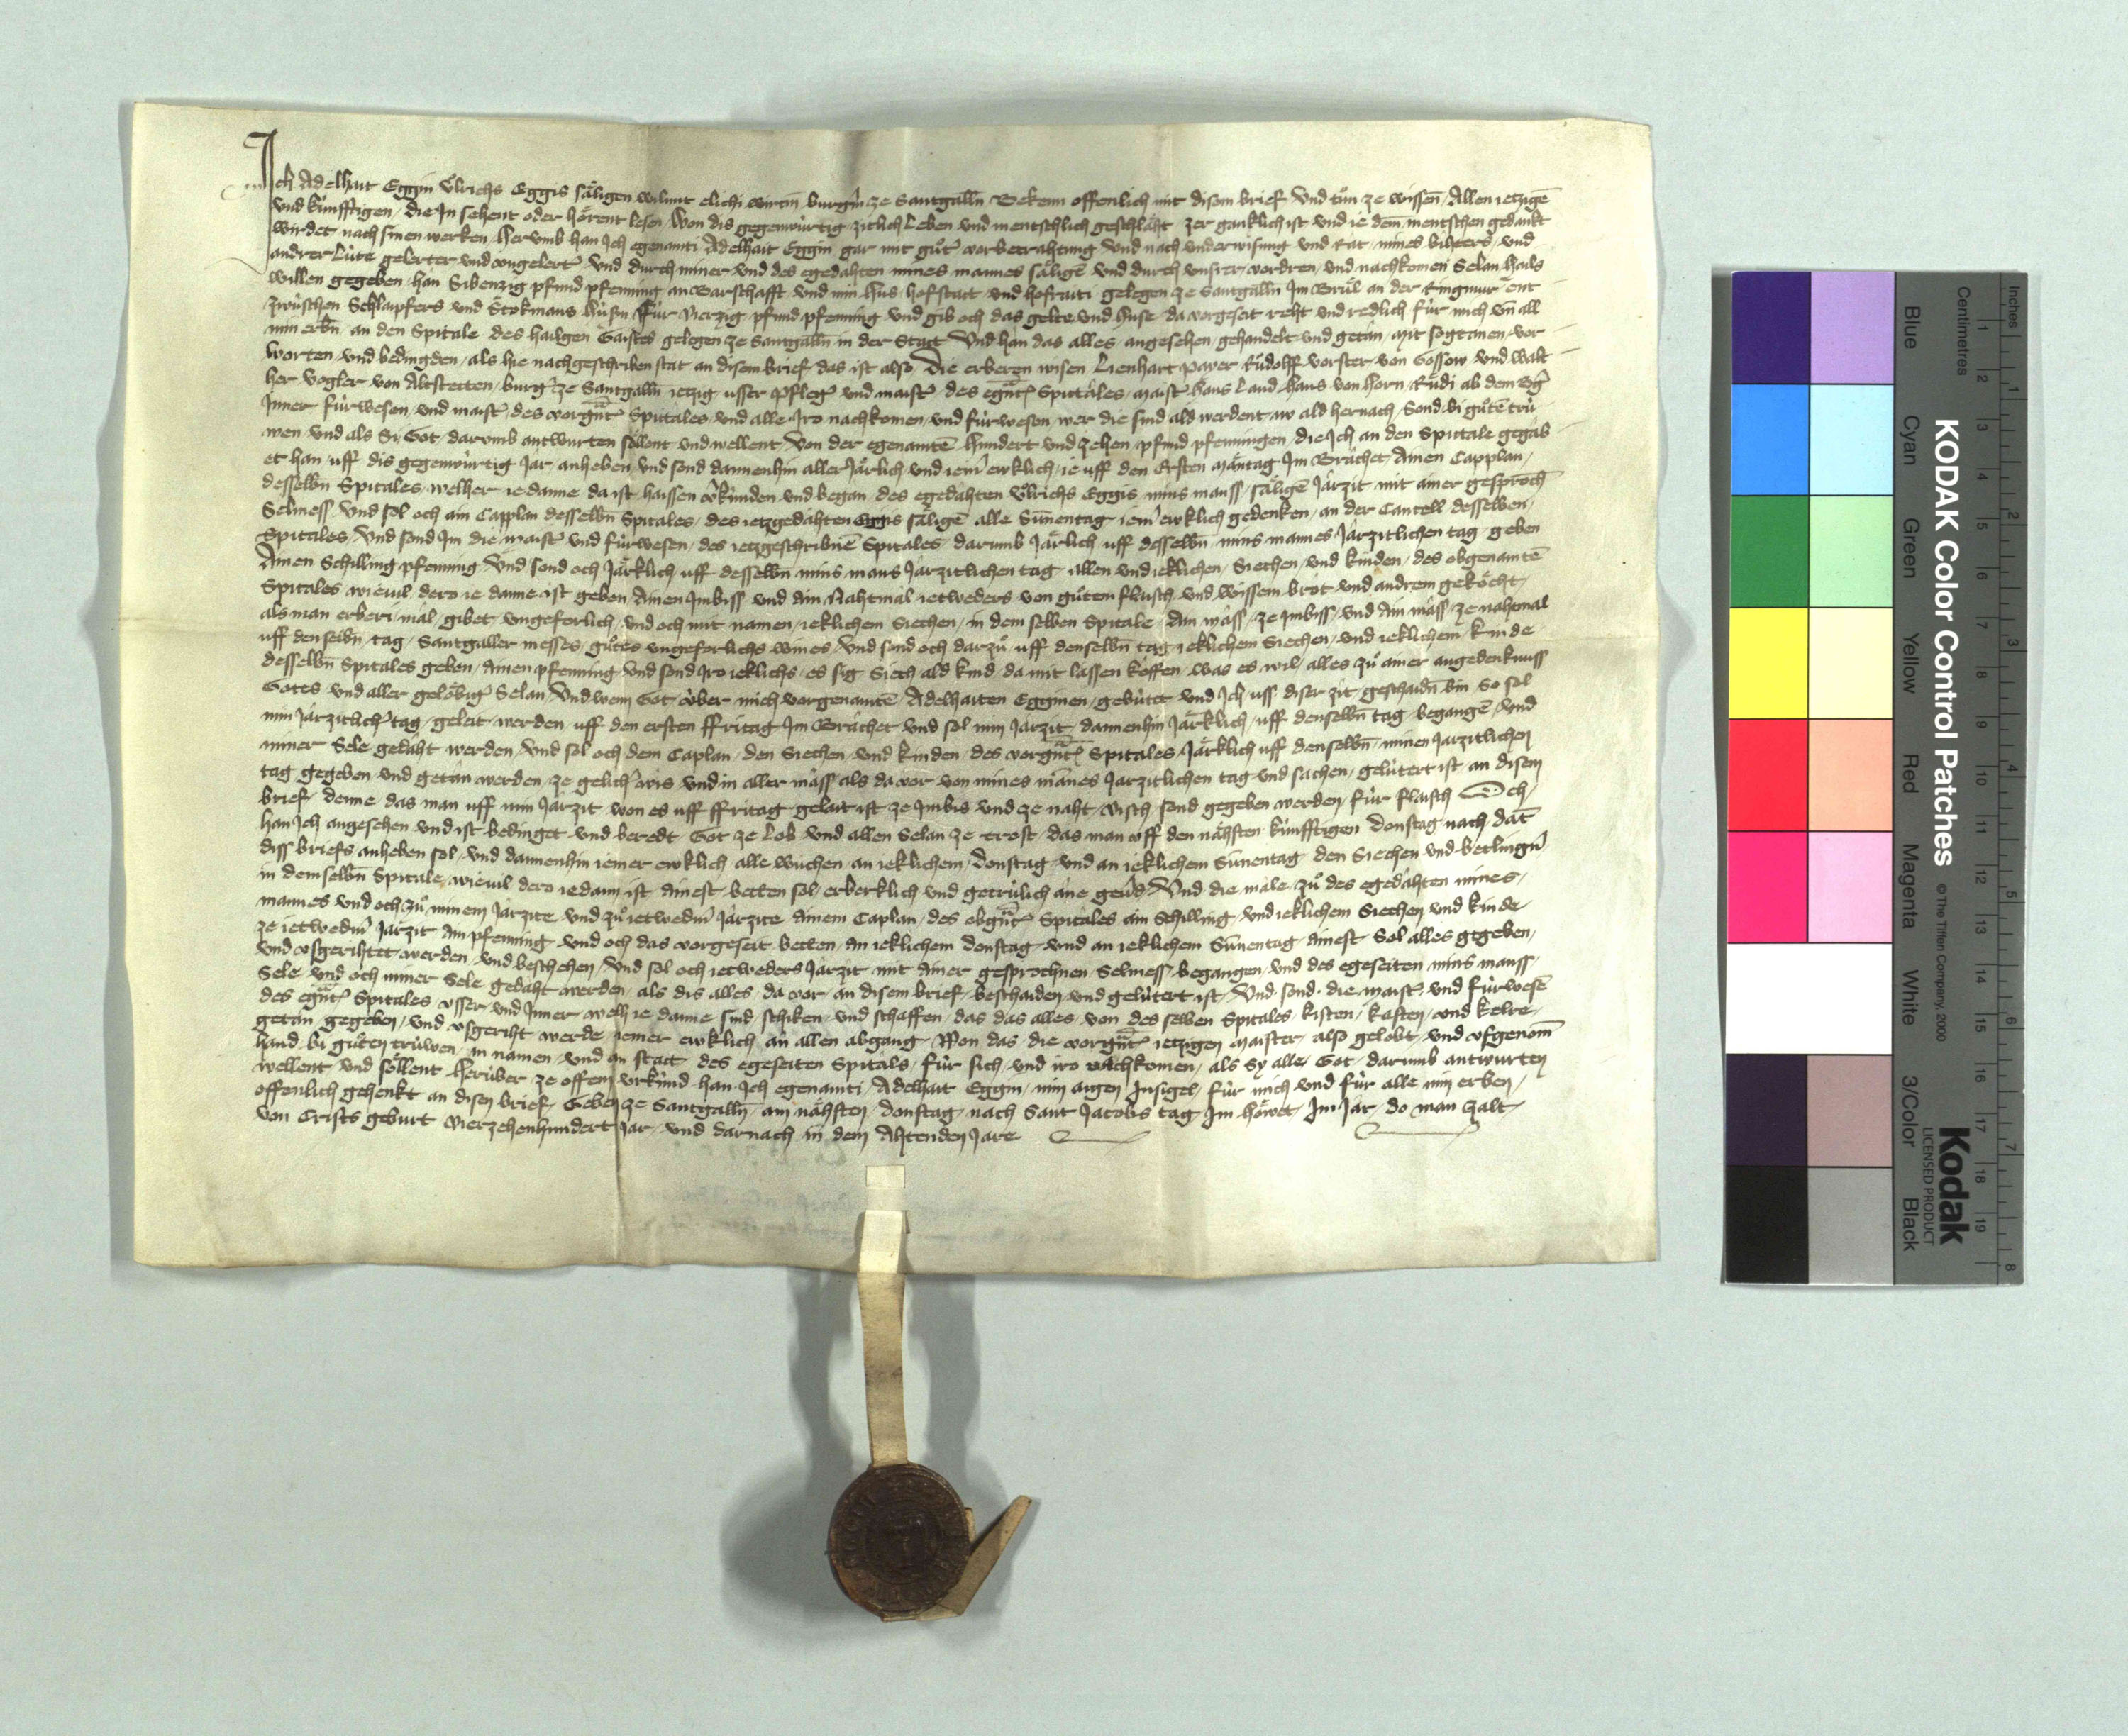 Ich Adelhait Eggin Ůlrichs Eggis såligen wilunt elichi wirtin burgin ze Santgallñ Bekenn offenlich mit disem brief Und tůn ze wissen Allen ietzigē
und künfftigen / die In sehent oder hörent lesen / Won dis gegenwürtig zitlich Leben und mentschlich geschläht zer ganklich ist und ie dem mentschen gedankt
wirdet nach sinen werken / Herumb han Ich egenamti Adelhait Eggin gar mit gůt vorbetrahtung Und nach underwisung und Rat / mines bihters / und
andrer Lüte gelerter und ungelert Und durch miner und des egedahten mines mannes säligē und durch unsrer vordren / und nachkomen Selan hails
willen gegeben / han Sibenzig pfund pfenning an warschafft und min Hus / hofstatt und hofraiti gelegen ze Santgallñ Im Brůl an der Ringmur ent
zwüschen Schlaipfers und Stokmans Hüsrn Für vierzig pfund pfenning und gib och das gelte und Huse da vorgeseit reht und redlich für mich uñ all
min erbñ an den Spitale des hailgen Gaistes gelegen ze Santgallñ in der Statt Und han das alles angesehen gehandelt und getan / mit sogtanen / vor
worten und bedingden / als hie nachgeschriben stat an disem brief das ist also Die erberen wisen Lienhart Payer Růdolff vorster von Gossow und walt
her vogler von Altstetten / burg ze Santgallñ ietzig usser Pfleg und maist des egñt Spitales / maist Hans Land Hans von Horn Růdi ab dem
Inner fürwesen und maist des vorgñt Spitales / und alle Iro nachkomen / und fürwesen / wer die sind ald werdent nu ald hernach / Sond bi gůtē trü
wen / und als Si Got / darumb antwurten söllent und wellent / Von der egenamtē Hundert und zehen / pfund pfenningen / die Ich an den Spitale gegab
et han / uff dis gegenwürtig Jar anheben / und sond dannenhin aller Järlich und iem ewklich / ie uff den Ersten mäntag Im Brachet / Ainen Capplan /
desselbñ Spitales / welher ie danne da ist / haissen vkünden und began / des egedahten Ůlrichs Eggis mins manss / säligē Jarzit mit ainer gesproch
Selmess / Und sol och ain Capplan desselbñ Spitales / des ietzgedahten Eggis säligē alle Sunnentag iem ewklich gedenken / an der Cantzell desselben /
Spitales / Und sond Im die maist und fürwesen / des ietzgeschribnē Spitales darumb Järlich uff desselbñ mins mannes Jarzitlichen tag geben
Ainen Schilling pfenning Und sond och Järklich uff desselbñ mins mans Jarzitlichen tag allen und ieklichen / Siechen / und kinden / des obgenamtē
Spitales wievil dero ie danne ist geben / Ainen Imbiss und Ain Nahtmal ietweders von gůtem flaisch und wissem brot und andrem geköcht /
als man erberi mal / gibet ungeforlich / und och mit namen / ieklichem Siechen / in dem selben Spitale / Ain mäss / ze Imbiss / und Ain mäss / ze nahtmal
uff denselbñ tag / Santgaller messes / gůtes ungeforlichs wines / Und sond och darzů uff denselbñ tag ieklichem Siechen / und ieklichem kinde
desselbñ Spitales geben / ainen pfenning und sond Iro ieklichs / es sig Siech ald kind / da mit lassen köffen / was es wil / alles zů ainer angedenknuss
Gotes und aller gelöbig Selan / Und wenn Got über mich vorgenamtē Adelhaiten Egginen / gebütet und Ich uss diser zit / geschaidñ bin So sol
min Jarzitlich tag / geleit werden uff den ersten ffritag Im Brachet / und sol min Jarzit / dannenhin Järklich / uff denselbñ tag begangē / und
miner Sele gedaht werden / Und sol och dem Caplan / den Siechen und kinden / des vorgñt Spitales / Järklich uff denselbñ / minen Jarzitlichen
tag gegeben und getan werden / ze gelich wis und in aller mäss als da vor von mines mānes Jarzitlichen tag und sachen / gelütert ist an disem
brief / denne das man uff min Jarzit / won es uff ffritag gelait ist ze Imbis und ze naht visch sond gegeben werden / für flaisch Och /
han Ich angesehen und ist bedinget und beredt Got ze Lob und allen Selan ze trost / das man uff den nähsten künfftigen donstag nach dat
diss briefs anheben sol / und dannenhin iemer ewklich alle wuchen / an ieklichem / donstag und an ieklichem Sunentag den Siechen und betling
in demselbñ Spitale wievil dero ie dann ist ainest betten sol / erberklich und getrülich ane geud Und die male / zů des egedahten mines /
mannes und och zů minem Jarzite und zů ietwedm Jarzite Ainem Caplan / des obgñt Spitales ain Schilling und ieklichem Siechen und kinde
ze ietwedm Jarzit Ain pfenning und och das vorgeseit betten / an ieklichem donstag und an ieklichem Sunentag Ainest Sol alles gegeben /
und usgerihtet werden / und beschehen / Und sol och ietweders Jarzit mit Ainer gesprochnen Selmess begangen / und des egeseiten mins manss /
Sele und och miner Sele gedaht werden / als dis alles / da vor an disem brief beschaiden und gelütert ist / Und sond die maist und fürwesē
des egñt Spitales usser und Inner welh ie danne sind / schiken / und schaffen / das das alles / von des selben Spitales kisten / kasten / und kelre /
getan gegeben / und usgeriht werde / iemer ewklich an allen abgang Won das die vorgñt ietzigen maister also gelobt / und ufgenom
hand bi gůten trüwen / in namen / und an statt des egeseiten Spitals / für sich und iro nachkomen / als sy alle Got / darumb antwurten
wellent und söllent Herüber ze offem urkünd han Ich egenamti Adelhait Eggin / min aigen Insigel / für mich und für alle min erben /
offenlich gehenkt an disen brief / Geben ze Santgallñ am nähsten / donstag nach Sant Jacobs tag Im höwet / Im Jar / do man zalt
von Crists geburt vierzehenhundert Jar / und darnach in dem Ahtenden Jare
KODAK Color Control Patches
© The Tiffen Company, 2000
Kodak
LICENSED PRODUCT
Blue
Cyan
Green
Yellow
Red
Magenta
White
3/Color
Black
Centimetres
Inches
1 2 3 4 5 6 7 8 9 10 11 12 13 14 15 16 17 18 19
1 2 3 4 5 6 7 8